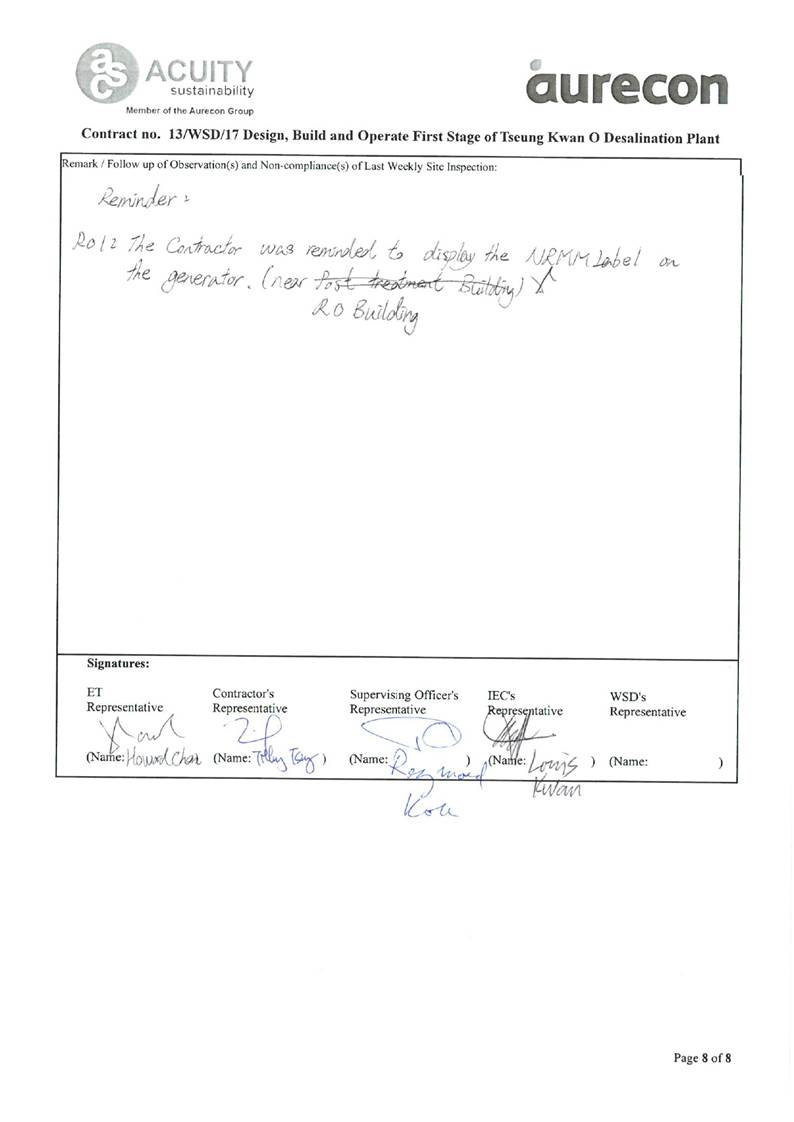 asc ACUITY
sustainability
Member of the Aurecon Group
aurecon
Contract no. 13/WSD/17 Design, Build and Operate First Stage of Tseung Kwan O Desalination Plant
Remark / Follow up of Observation(s) and Non-compliance(s) of Last Weekly Site Inspection:
Reminder:
R01: The Contractor was reminded to display the NRMM Label on
the generator. (near Post treatment Building)
RO Building
Signatures:
ET Representative
Contractor's Representative
Supervising Officer's Representative
IEC's Representative
WSD's Representative
(Name: Howard Chan (Name: ) (Name: Raymond ) (Name: Louis ) (Name: )
Kwan
Page 8 of 8